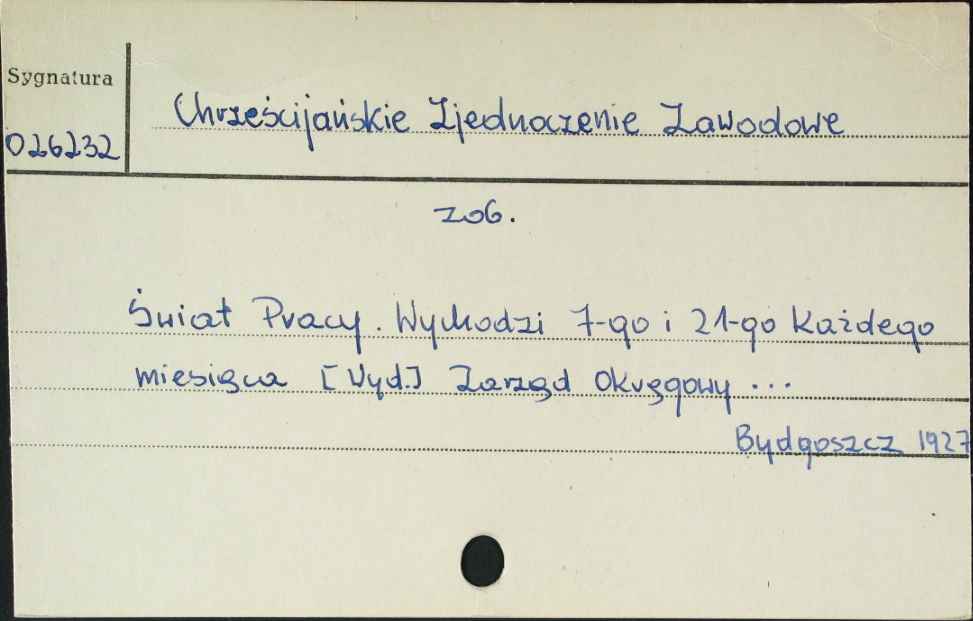 Sygnatura
026232
Chrześcijańskie Zjednoczenie Zawodowe
zob.
Świat Pracy. Wychodzi 7-go i 21-go każdego
miesiąca [Wyd.] Zarząd Okręgowy ...
Bydgoszcz 1927